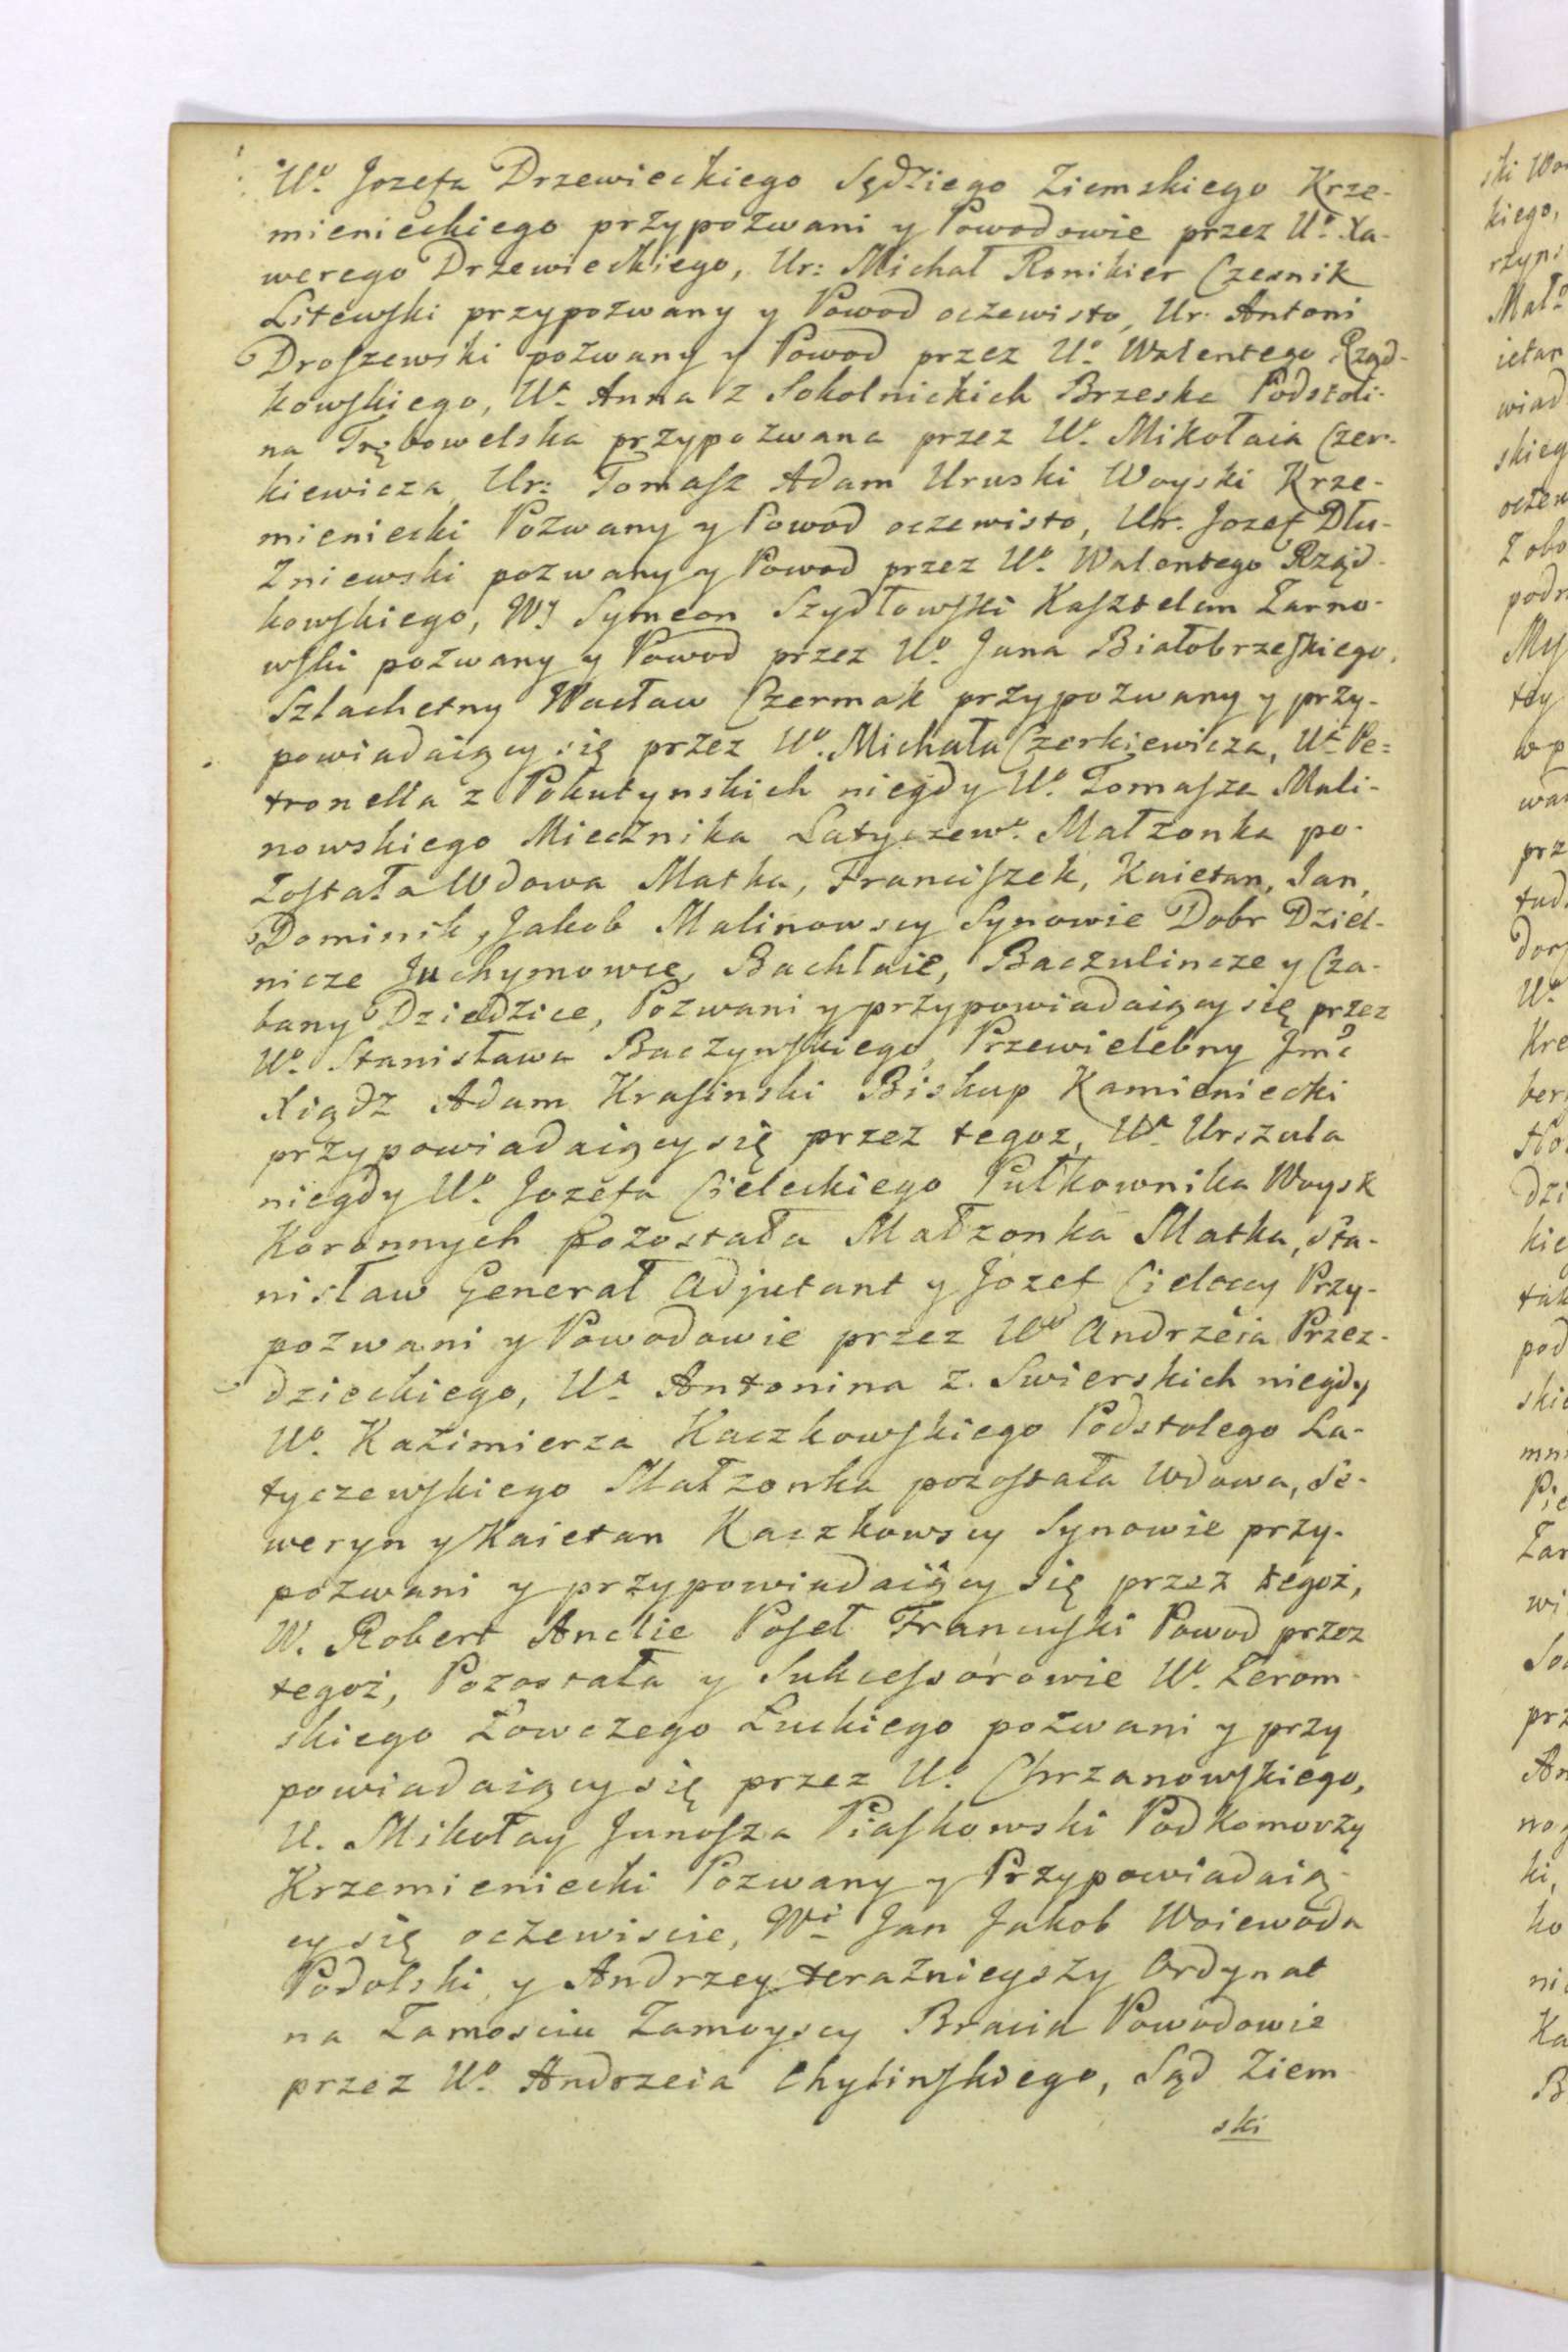 Uo. Jozefa Drzewieckiego Sędziego Ziemskiego Krze-
mienieckiego przypozwani y Powodowie przez Uo. Xa-
werego Drzewieckiego, Ur: Michał Ronikier Czesnik
Litewski przypozwany y Powod oczewisto, Ur. Antoni
Droszewski pozwany y Powod przez Uo. Walentego Rząd-
kowskiego, Wa. Anna z Sokolnickich Brzeska Podstoli-
na Trębowelska przypozwana przez Wo. Mikołaia Czer-
kiewicza, Ur: Tomasz Adam Uruski Woyski Krze-
mieniecki Pozwany y Powod oczewisto, Ur. Jozef Dłu-
zniewski pozwany y Powod przez Uo. Walentego Rząd-
kowskiego, WJ Symeon Szydłowski Kasztelan Zarno-
wski pozwany y Powod przez Uo. Jana Białobrzeskiego,
Szlachetny Wacław Czermak przypozwany y przy-
powiadaiący się przez Uo. Michała Czerkiewicza, Ua Pe=
tronella z Pokutynskich niegdy Uo. Tomasza Mali-
nowskiego Miecznika Latyczewo. Małzonka po-
zostala Wdowa Matka, Franciszek, Kaietan, Jan,
Dominik, Jakob Malinowscy Synowie Dobr Dziel-
nicze Juchymowce, Bachłaie, Baczulincze y Cza-
bany Dziedzice, Pozwani y przypowiadaiący się przez
Uo. Stanisława Baczynskiego, Przewielebny Jmć
Xiądz Adam Krasinski Biskup Kamieniecki
przypowiadaiący się przez tegoz, Ua Urszula
niegdy Uo. Jozefa Cieleckiego Pułkownika Woysk
Koronnych pozostała Małzonka Matka, Sta-
nisław Generał Adjutant y Jozef Cieleccy Przy-
pozwani y Powodowie przez Uo Andrzeia Przez-
dzieckiego, Ua Antonina z Swierskich niegdy
Uo. Kazimierza Kaczkowskiego Podstolego La-
tyczewskiego Małzonka pozostała Wdowa, Se-
weryn y Kaietan Kaczkowscy Synowie przy-
pozwani y przypowiadaiący się przez tegoż,
W. Robert Anclie Poseł Francuski Powod przez
tegoż, Pozostała y Sukcessorowie Wo. Zerom-
skiego Łowczego Łuckiego pozwani y przy
powiadaiący się przez Uo. Chrzanowskiego,
U. Mikołay Junosza Piaskowski Podkomorzy
Krzemieniecki Pozwany y Przypowiadaią-
cy się oczewiscie, Wi Jan Jakob Woiewoda
Podolski, y Andrzey teraznieyszy Ordynat
na Zamosciu Zamoyscy Bracia Powodowie
przez Uo. Andrzeia Chylinskiego, Sąd Ziem-
ski